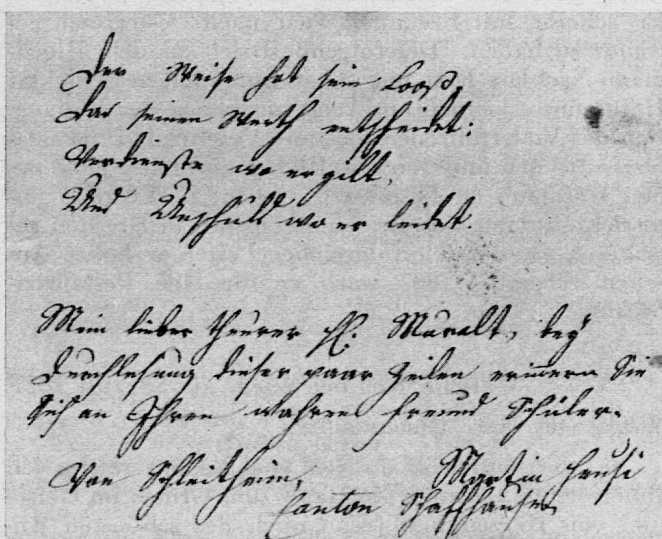 Der Weise hat sein Looß,
Das seinen Werth entscheidet:
Verdienste wo er gilt,
Und Unschuld wo er leidet.
Mein lieber theurer H. Muralt, bey
Durchlesung dieser paar Zeilen erinnern Sie
sich an Ihren wahren Freund Schüler.
Von Schleitheim,
Martin
Canton Schaffhausen